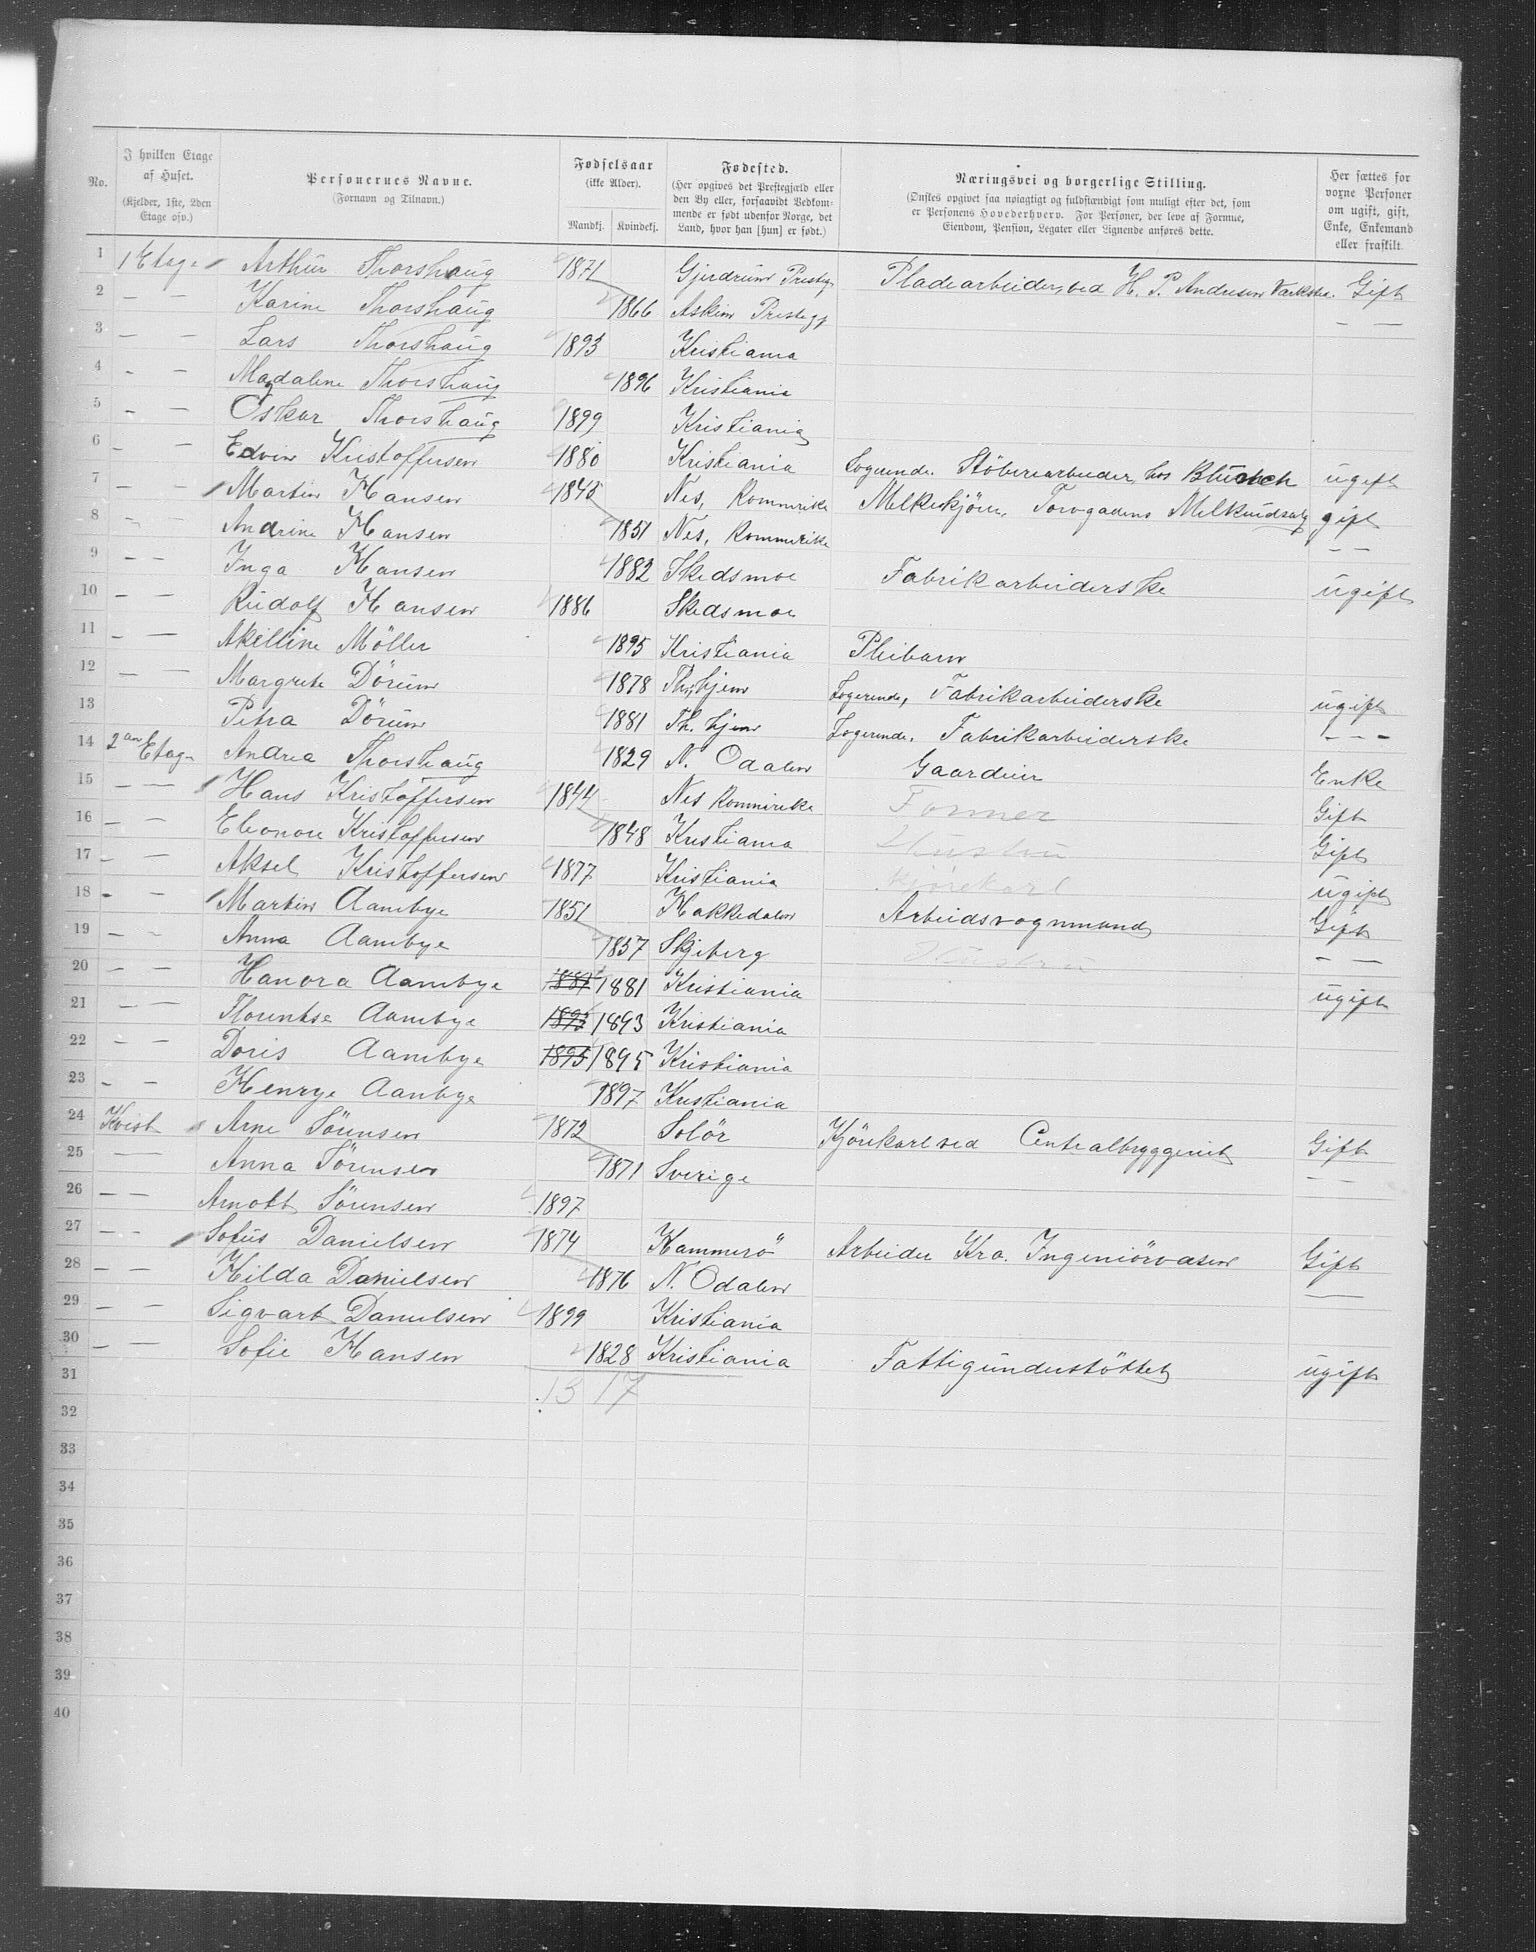 No. I hvilken Etage af Huset. (Kjelder, 1ste, 2den Etage osv.) Personernes Navne. (Fornavn og Tilnavn.) Fødselsaar (ikke Alder). Mandkj. Kvindekj. Fødested. (Her opgives det Prestegjæld eller den By eller, forsaavidt Vedkommende er født udenfor Norge, det Land, hvor han [hun] er født.) Næringsvei og borgerlige Stilling. (Ønskes opgivet saa nøiagtigt og fuldstændigt som muligt efter det, som er Personens Hovederhverv. For Personer, der leve af Formue, Eiendom, Pension, Legater eller Lignende anføres dette. Her sættes for voxne Personer om ugift, gift, Enke, Enkemand eller fraskilt.
1 1 Etage Arthur Thorshaug 1871 Gjerdrum Presteg. Pladearbeider, ved H. P. Andresen Værksted. Gift
2 — — Karine Thorshaug 1866 Askim Prestegj — —
3 — — Lars Thorshaug 1893 Kristiania
4 - — Magdalene Thorshaug 1896 Kristiania
5 - — Oskar Thorshaug 1899 Kristiania
6 - — Edvin Kristoffersen 1880 Kristiania Logerende. Stöberiarbeider, hos ugift
7 - — Martin Hansen 1845 Nes, Rommerike Melkekjörer, Torvgadens Melkeudsalg gift
8 - — Andrine Hansen 1851 Nes, Rommerike — —
9 — — Inga Hansen 1882 Skedsmoe Fabrikarbeiderske ugift
10 — — Rudolf Hansen 1886 Skedsmoe
11 - — Akelline Möller 1895 Kristiania Pleibarn
12 — — Margrete Dörum 1878 Thr.hjem Logerende, Fabrikarbeiderske ugift
13 Petra Dörum 1881 Th. hjem Logerende. Fabrikarbeiderske - - -
14 2den Etage Andrea Thorshaug 1829 N. Odalen Gaardeier Enke
15 — — Hans Kristoffersen 1844 Nes Rommerike Former Gift
16 — — Eleonore Kristoffersen 1848 Kristiania Hustru Gift
17 - — Aksel Kristoffersen 1877 Kristiania Kjørekarl ugift
18 - - Martin Aambye 1851 Hakkedalen Arbeidsvognmand Gift
19 - - Anna Aambye 1857 Skjeberg Hustru — —
20 — — Hanora Aambye 1881 1881 Kristiania ugift
21 — — Florentse Aambye 1893 1893 Kristiania
22 — — Doris Aambye 1895 1895 Kristiania
23 - — Henrye Aambye 1897 Kristiania
24 Kvist Arne Sörensen 1872 Solör Kjörekarl ved Centralbryggeriet Gift
25 — — Anna Sörensen 1871 Sverige - -
26 — — Arnolt Sörensen 1897
27 — - Sofus Danielsen 1874 Hammerö Arbeider Kra. Ingeniörvæsen Gift
28 — — Hilda Danielsen 1876 N. Odalen —
29 — — Sigvart Danielsen 1899 Kristiania
30 — — Sofie Hansen 1828 Kristiania Fattigunderstöttet ugift
31 13 17
32
33
34
35
36
37
38
39
40